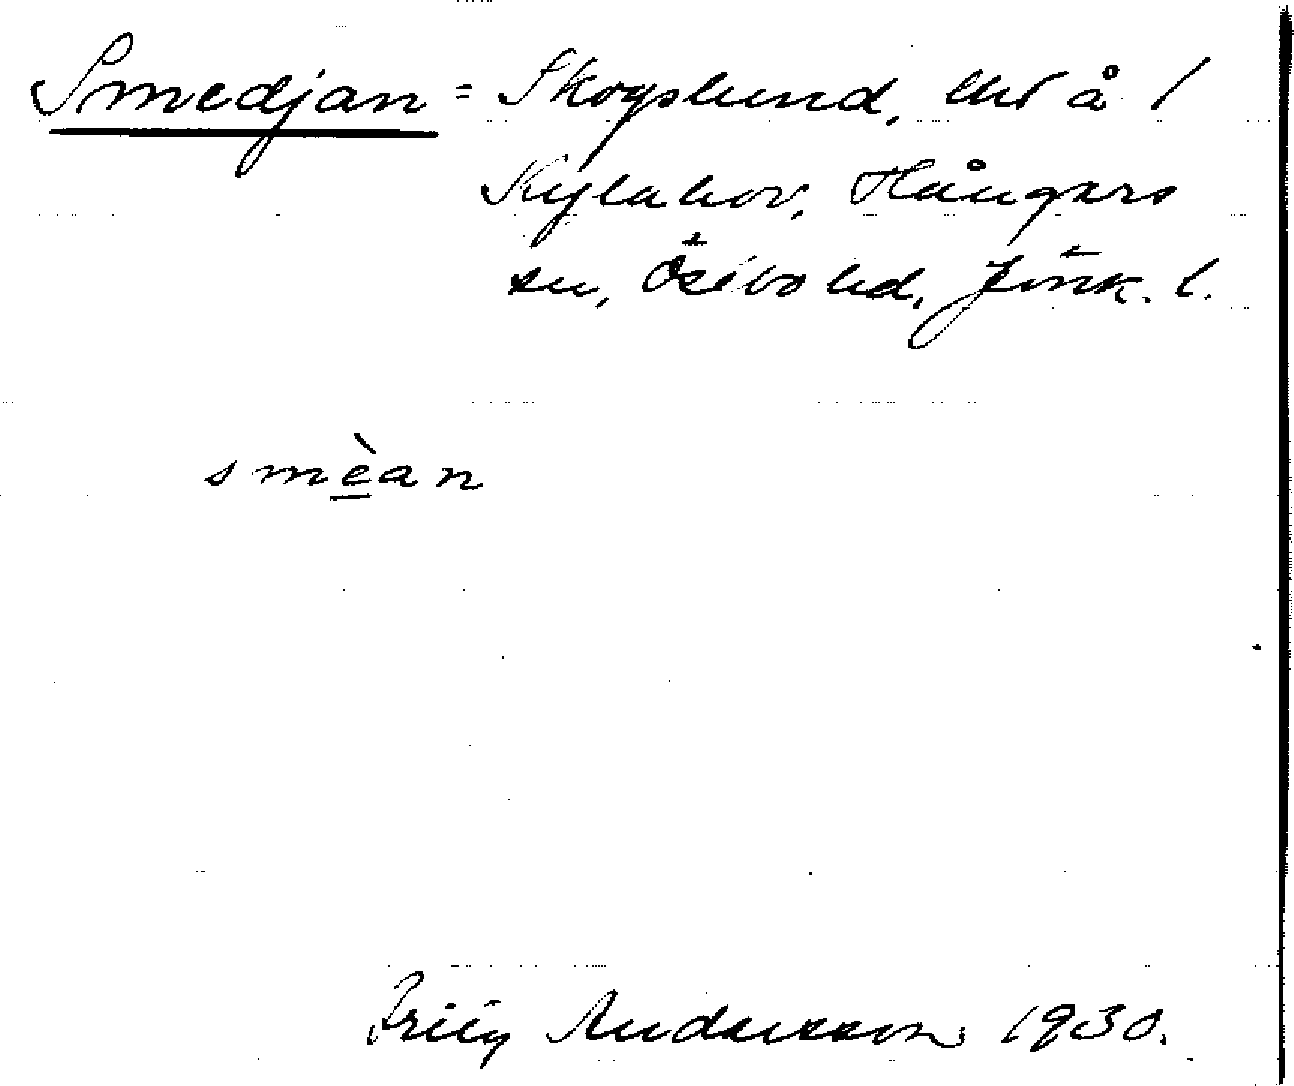 Smedjan = Skogslund, lht å 1
Kylahov, Hångers
sn, Östbo hd, Jönk. l.
smèan
Fritz Andersson 1930.